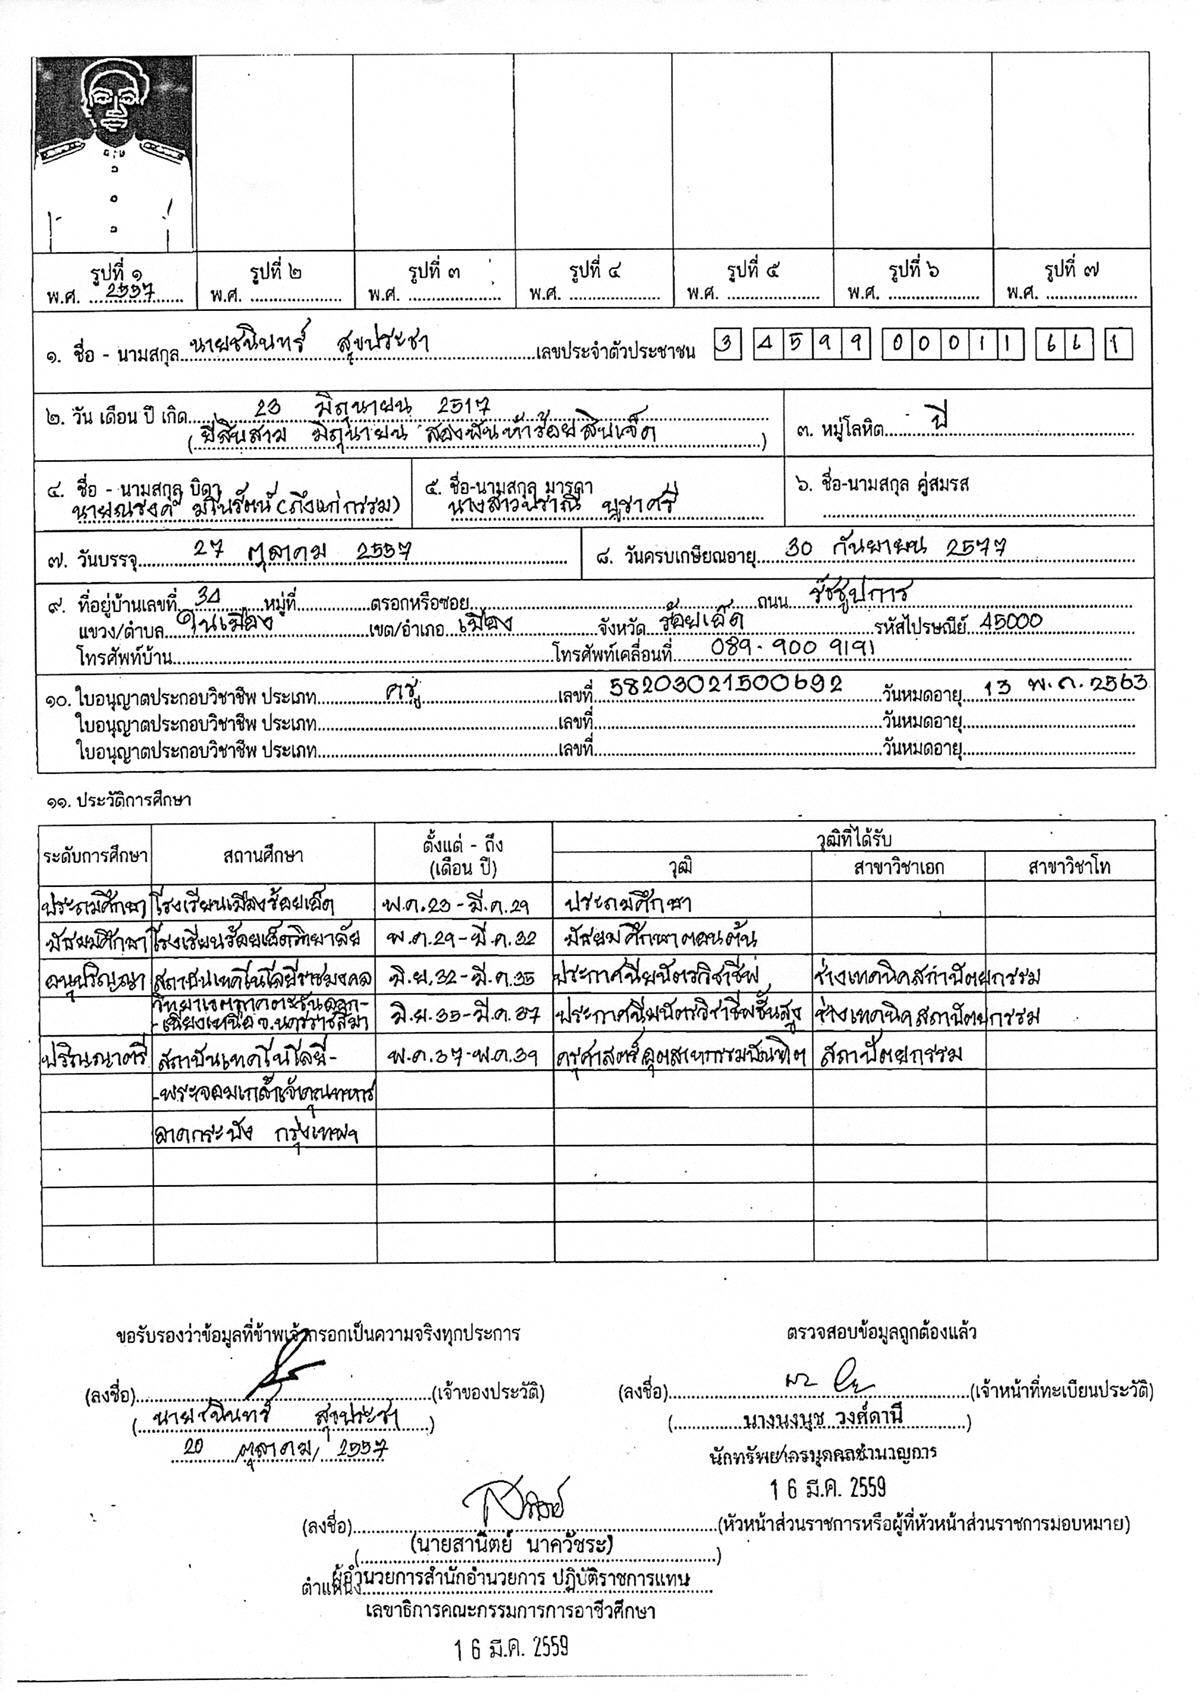 รูปที่ ๑ รูปที่ ๒ รูปที่ ๓ รูปที่ ๔ รูปที่ ๕ รูปที่ ๖ รูปที่ ๗
พ.ศ. 2557 พ.ศ. พ.ศ. พ.ศ. พ.ศ. พ.ศ. พ.ศ.
๑. ชื่อ - นามสกุล นายชนินทร์ สุขประชา เลขประจำตัวประชาชน 3 4599 00011 661
๒. วัน เดือน ปี เกิด 23 มิถุนายน 2517
(ยี่สิบสาม มิถุนายน สองพันห้าร้อยสิบเจ็ด)
๓. หมู่โลหิต บี
๔. ชื่อ - นามสกุล บิดา
นายณรงค์ มโนรัตน์ (ถึงแก่กรรม)
๕. ชื่อ-นามสกุล มารดา
นางสาวปราณี บูชาศรี
๖. ชื่อ-นามสกุล คู่สมรส
๗. วันบรรจุ 27 ตุลาคม 2557 ๘. วันครบเกษียณอายุ 30 กันยายน 2577
๙. ที่อยู่บ้านเลขที่ 34 หมู่ที่ ตรอกหรือซอย ถนน รัชชูปการ
แขวง/ตำบล ในเมือง เขต/อำเภอ เมือง จังหวัด ร้อยเอ็ด รหัสไปรษณีย์ 45000
โทรศัพท์บ้าน โทรศัพท์เคลื่อนที่ 089-900 9191
๑๐. ใบอนุญาตประกอบวิชาชีพ ประเภท ครู เลขที่ 58203021500692 วันหมดอายุ 13 พ.ค. 2563
ใบอนุญาตประกอบวิชาชีพ ประเภท เลขที่ วันหมดอายุ
ใบอนุญาตประกอบวิชาชีพ ประเภท เลขที่ วันหมดอายุ
๑๑. ประวัติการศึกษา
ระดับการศึกษา สถานศึกษา ตั้งแต่ - ถึง (เดือน ปี) วุฒิที่ได้รับ
วุฒิ สาขาวิชาเอก สาขาวิชาโท
ประถมศึกษา โรงเรียนเมืองร้อยเอ็ด พ.ค.23-มี.ค.29 ประถมศึกษา
มัธยมศึกษา โรงเรียนร้อยเอ็ดวิทยาลัย พ.ค.29-มี.ค.32 มัธยมศึกษาตอนต้น
อนุปริญญา สถาบันเทคโนโลยีราชมงคล มิ.ย.32-มี.ค.35 ประกาศนียบัตรวิชาชีพ ช่างเทคนิคสถาปัตยกรรม
วิทยาเขตภาคตะวันออก-
-เฉียงเหนือ จ.นครราชสีมา มิ.ย.35-มี.ค.37 ประกาศนียบัตรวิชาชีพชั้นสูง ช่างเทคนิคสถาปัตยกรรม
ปริญญาตรี สถาบันเทคโนโลยี- พ.ค.37-พ.ค.39 ครุศาสตร์อุตสาหกรรมบัณฑิต สถาปัตยกรรม
-พระจอมเกล้าเจ้าคุณทหาร
ลาดกระบัง กรุงเทพฯ
ขอรับรองว่าข้อมูลที่ข้าพเจ้ากรอกเป็นความจริงทุกประการ ตรวจสอบข้อมูลถูกต้องแล้ว
(ลงชื่อ) (เจ้าของประวัติ) (ลงชื่อ) (เจ้าหน้าที่ทะเบียนประวัติ)
(นายชนินทร์ สุขประชา) (นางนงนุช วงศ์ดานี)
20 ตุลาคม 2557 นักทรัพยากรบุคคลชำนาญการ
16 มี.ค. 2559
(ลงชื่อ) (หัวหน้าส่วนราชการหรือผู้ที่หัวหน้าส่วนราชการมอบหมาย)
(นายสานิตย์ นาควัชระ)
ตำแหน่ง ผู้อำนวยการสำนักอำนวยการ ปฏิบัติราชการแทน
เลขาธิการคณะกรรมการการอาชีวศึกษา
16 มี.ค. 2559